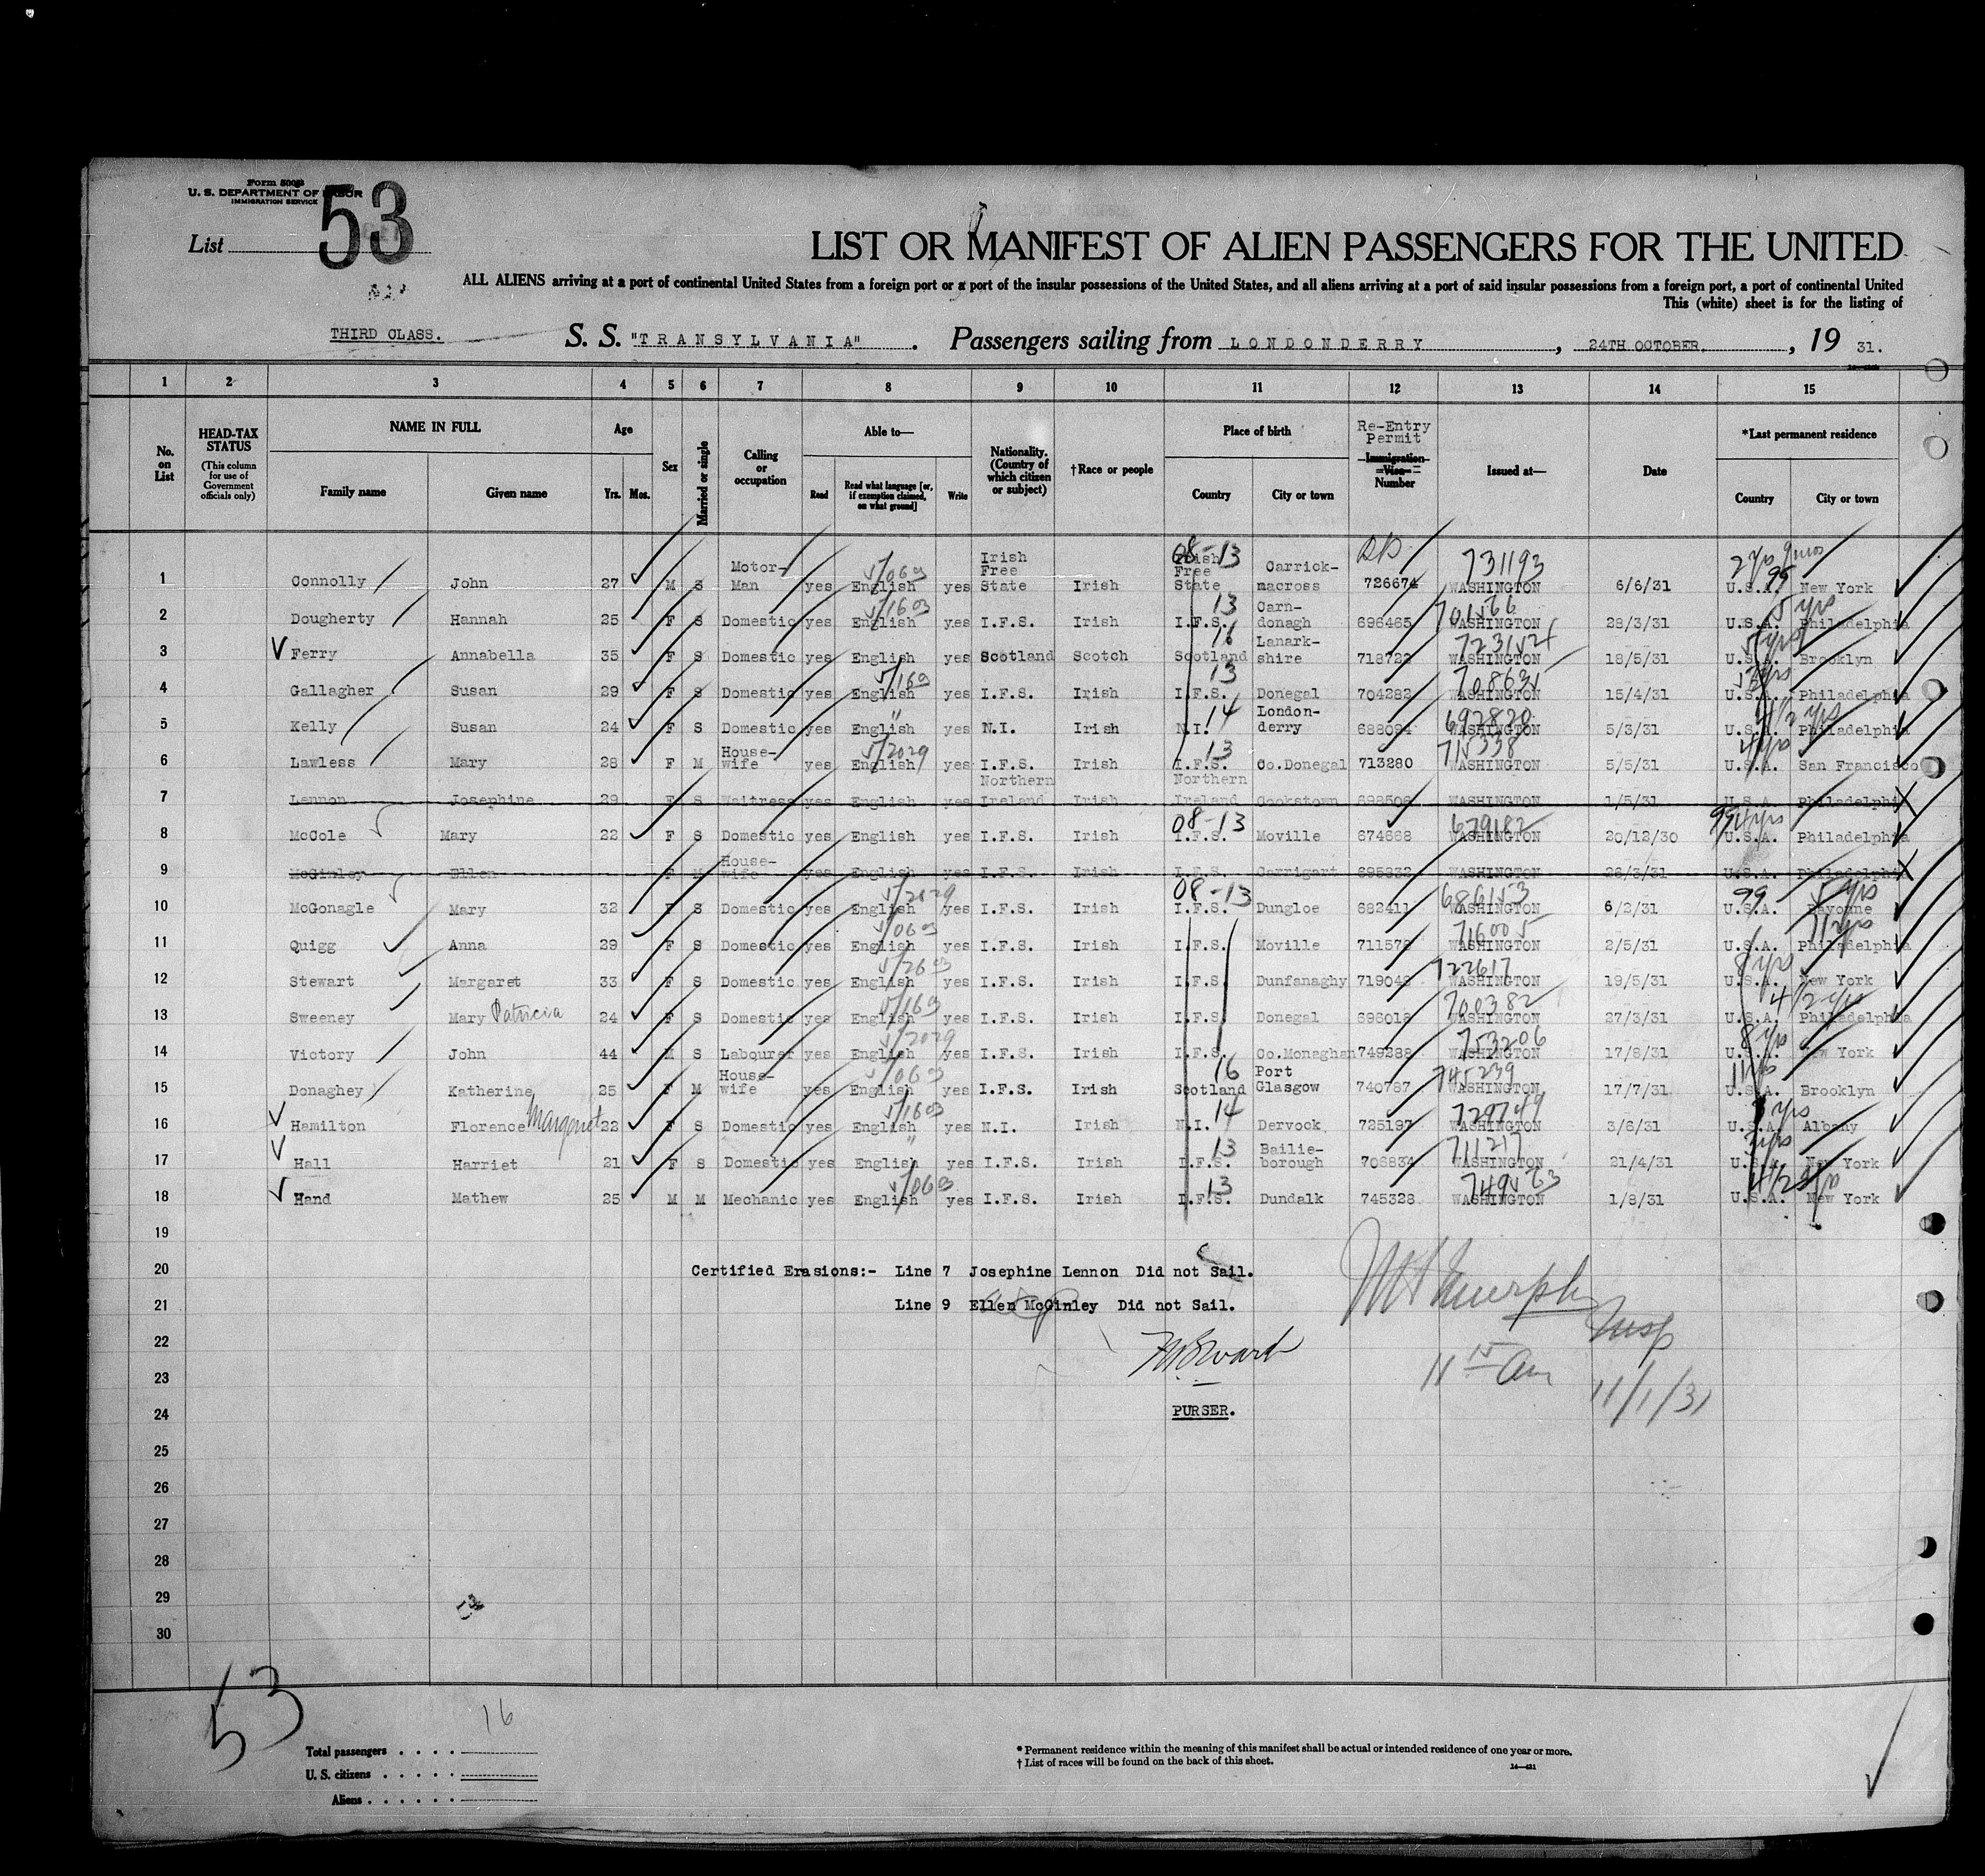 Form 500
U. S. DEPARTMENT OF LABOR
IMMIGRATION SERVICE
53
List
LIST OR MANIFEST OF ALIEN PASSENGERS FOR THE UNITED
ALL ALIENS arriving at a port of continental United States from a foreign port or a port of the insular possessions of the United States, and all aliens arriving at a port of said insular possessions from a foreign port, a port of continental United
This (white) sheet is for the listing of
THIRD CLASS. S. S. "TRANSYLVANIA". Passengers sailing from LONDONDERRY, 24TH OCTOBER, 19 31.
1 2 3 4 5 6 7 8 9 10 11 12 13 14 15
No. on List
HEAD-TAX STATUS (This column for use of Government officials only)
NAME IN FULL Family name Given name
Age Yrs. Mos.
Sex
Married or single
Calling or occupation
Able to— Read Read what language [or, if exemption claimed, on what ground] Write
Nationality. (Country of which citizen or subject)
†Race or people
Place of birth Country City or town
Re-Entry Permit Immigration Visa Number
Issued at—
Date
*Last permanent residence Country City or town
1 Connolly John 27 M S Motor-Man yes English 5/063 yes Irish Free State Irish Irish Free State 08-13 Carrick-macross 726674 731193 WASHINGTON 6/6/31 U.S.A. 2 yrs 9 mos 99 New York
2 Dougherty Hannah 25 F S Domestic yes English 5/1603 yes I.F.S. Irish I.F.S. 13 Carn-donagh 696465 701566 WASHINGTON 28/3/31 U.S.A. 5 yrs Philadelphia
3 Ferry Annabella 35 F S Domestic yes English yes Scotland Scotch Scotland 16 Lanark-shire 718722 WASHINGTON 18/5/31 U.S.A. Brooklyn
4 Gallagher Susan 29 F S Domestic yes English 5/163 yes I.F.S. Irish I.F.S. 13 Donegal 704282 708631 WASHINGTON 15/4/31 U.S.A. Philadelphia
5 Kelly Susan 24 F S Domestic yes English " yes N.I. Irish N.I. 14 London-derry 688094 692820 WASHINGTON 5/3/31 U.S.A. Philadelphia
6 Lawless Mary 28 F M House-wife yes English 5/2029 yes I.F.S. Irish I.F.S. 13 Co.Donegal 713280 715338 WASHINGTON 5/5/31 U.S.A. 4 yrs San Francisco
7 Lennon Josephine 29 F S Waitress yes English yes Northern Ireland Irish Northern Ireland Cookstown 698506 WASHINGTON 1/5/31 U.S.A. Philadelphia X
8 McCole Mary 22 F S Domestic yes English yes I.F.S. Irish I.F.S. 08-13 Moville 674668 679182 WASHINGTON 20/12/30 U.S.A. Philadelphia
9 McGinley Ellen F M House-wife yes English yes I.F.S. Irish I.F.S. Carrigart 695932 WASHINGTON 26/3/31 U.S.A. Philadelphia X
10 McGonagle Mary 32 F S Domestic yes English 5/2029 yes I.F.S. Irish I.F.S. 08-13 Dungloe 682411 686153 WASHINGTON 6/2/31 U.S.A. 99 5 yrs Bayonne
11 Quigg Anna 29 F S Domestic yes English 5/063 yes I.F.S. Irish I.F.S. Moville 711572 716005 WASHINGTON 2/5/31 U.S.A. Philadelphia
12 Stewart Margaret 33 F S Domestic yes English 5/2603 yes I.F.S. Irish I.F.S. Dunfanaghy 719048 722617 WASHINGTON 19/5/31 U.S.A. 8 yrs New York
13 Sweeney Mary Patricia 24 F S Domestic yes English 5/163 yes I.F.S. Irish I.F.S. Donegal 696018 700382 WASHINGTON 27/3/31 U.S.A. 4 1/2 yrs Philadelphia
14 Victory John 44 M S Labourer yes English 5/2029 yes I.F.S. Irish I.F.S. Co.Monaghan 749288 753206 WASHINGTON 17/8/31 U.S.A. 8 yrs New York
15 Donaghey Katherine 25 F M House-wife yes English 5/063 yes I.F.S. Irish Scotland 16 Port Glasgow 740787 745239 WASHINGTON 17/7/31 U.S.A. Brooklyn
16 Hamilton Florence Margaret 22 F S Domestic yes English 5/1603 yes N.I. Irish N.I. 14 Dervock 725197 729749 WASHINGTON 3/6/31 U.S.A. Albany
17 Hall Harriet 21 F S Domestic yes English " yes I.F.S. Irish I.F.S. 13 Bailie-borough 706834 711217 WASHINGTON 21/4/31 U.S.A. New York
18 Hand Mathew 25 M M Mechanic yes English 5/063 yes I.F.S. Irish I.F.S. 13 Dundalk 745328 749563 WASHINGTON 1/8/31 U.S.A. New York
19
20 Certified Erasions:- Line 7 Josephine Lennon Did not Sail.
21 Line 9 Ellen McGinley Did not Sail.
Murphy Insp
22
23 11 15 Am 11/1/31
24 PURSER.
25
26
27
28
29
30
53
16
Total passengers
U. S. citizens
Aliens
* Permanent residence within the meaning of this manifest shall be actual or intended residence of one year or more.
† List of races will be found on the back of this sheet.